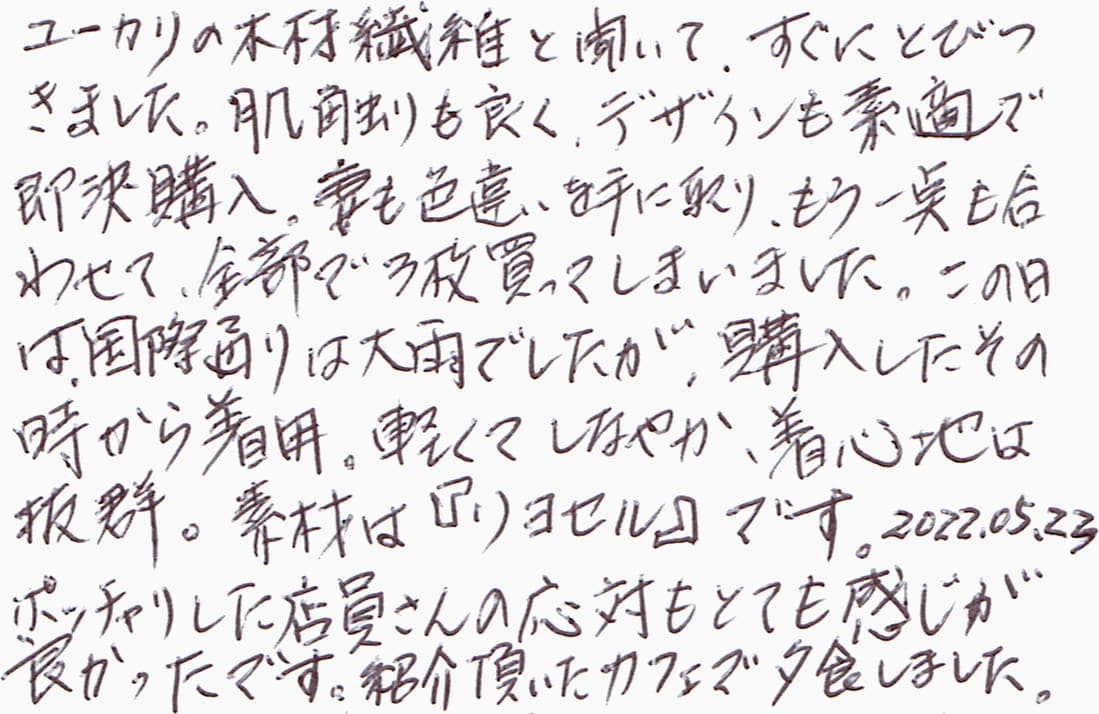 ユーカリの木材繊維と聞いて、すぐにとびつ
きました。肌触りも良く、デザインも素適で
即決購入。妻も色違いを手に取り、もう一点も合
わせて、全部で3枚買ってしまいました。この日
は国際通りは大雨でしたが、購入したその
時から着用。軽くてしなやか、着心地は
抜群。素材は『リヨセル』です。2022.05.23
ポッチャリした店員さんの応対もとても感じが
良かったです。紹介頂いたカフェで夕食しました。